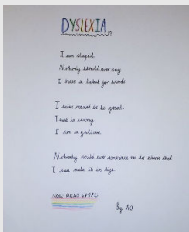 DYSLEXIA
I am stupid.
Nobody would ever say
I have a talent for words
I was meant to be great.
That is wrong
I am a failure
Nobody could ever convince me to think that
I can make it in life.
NOW READ UP
By AO